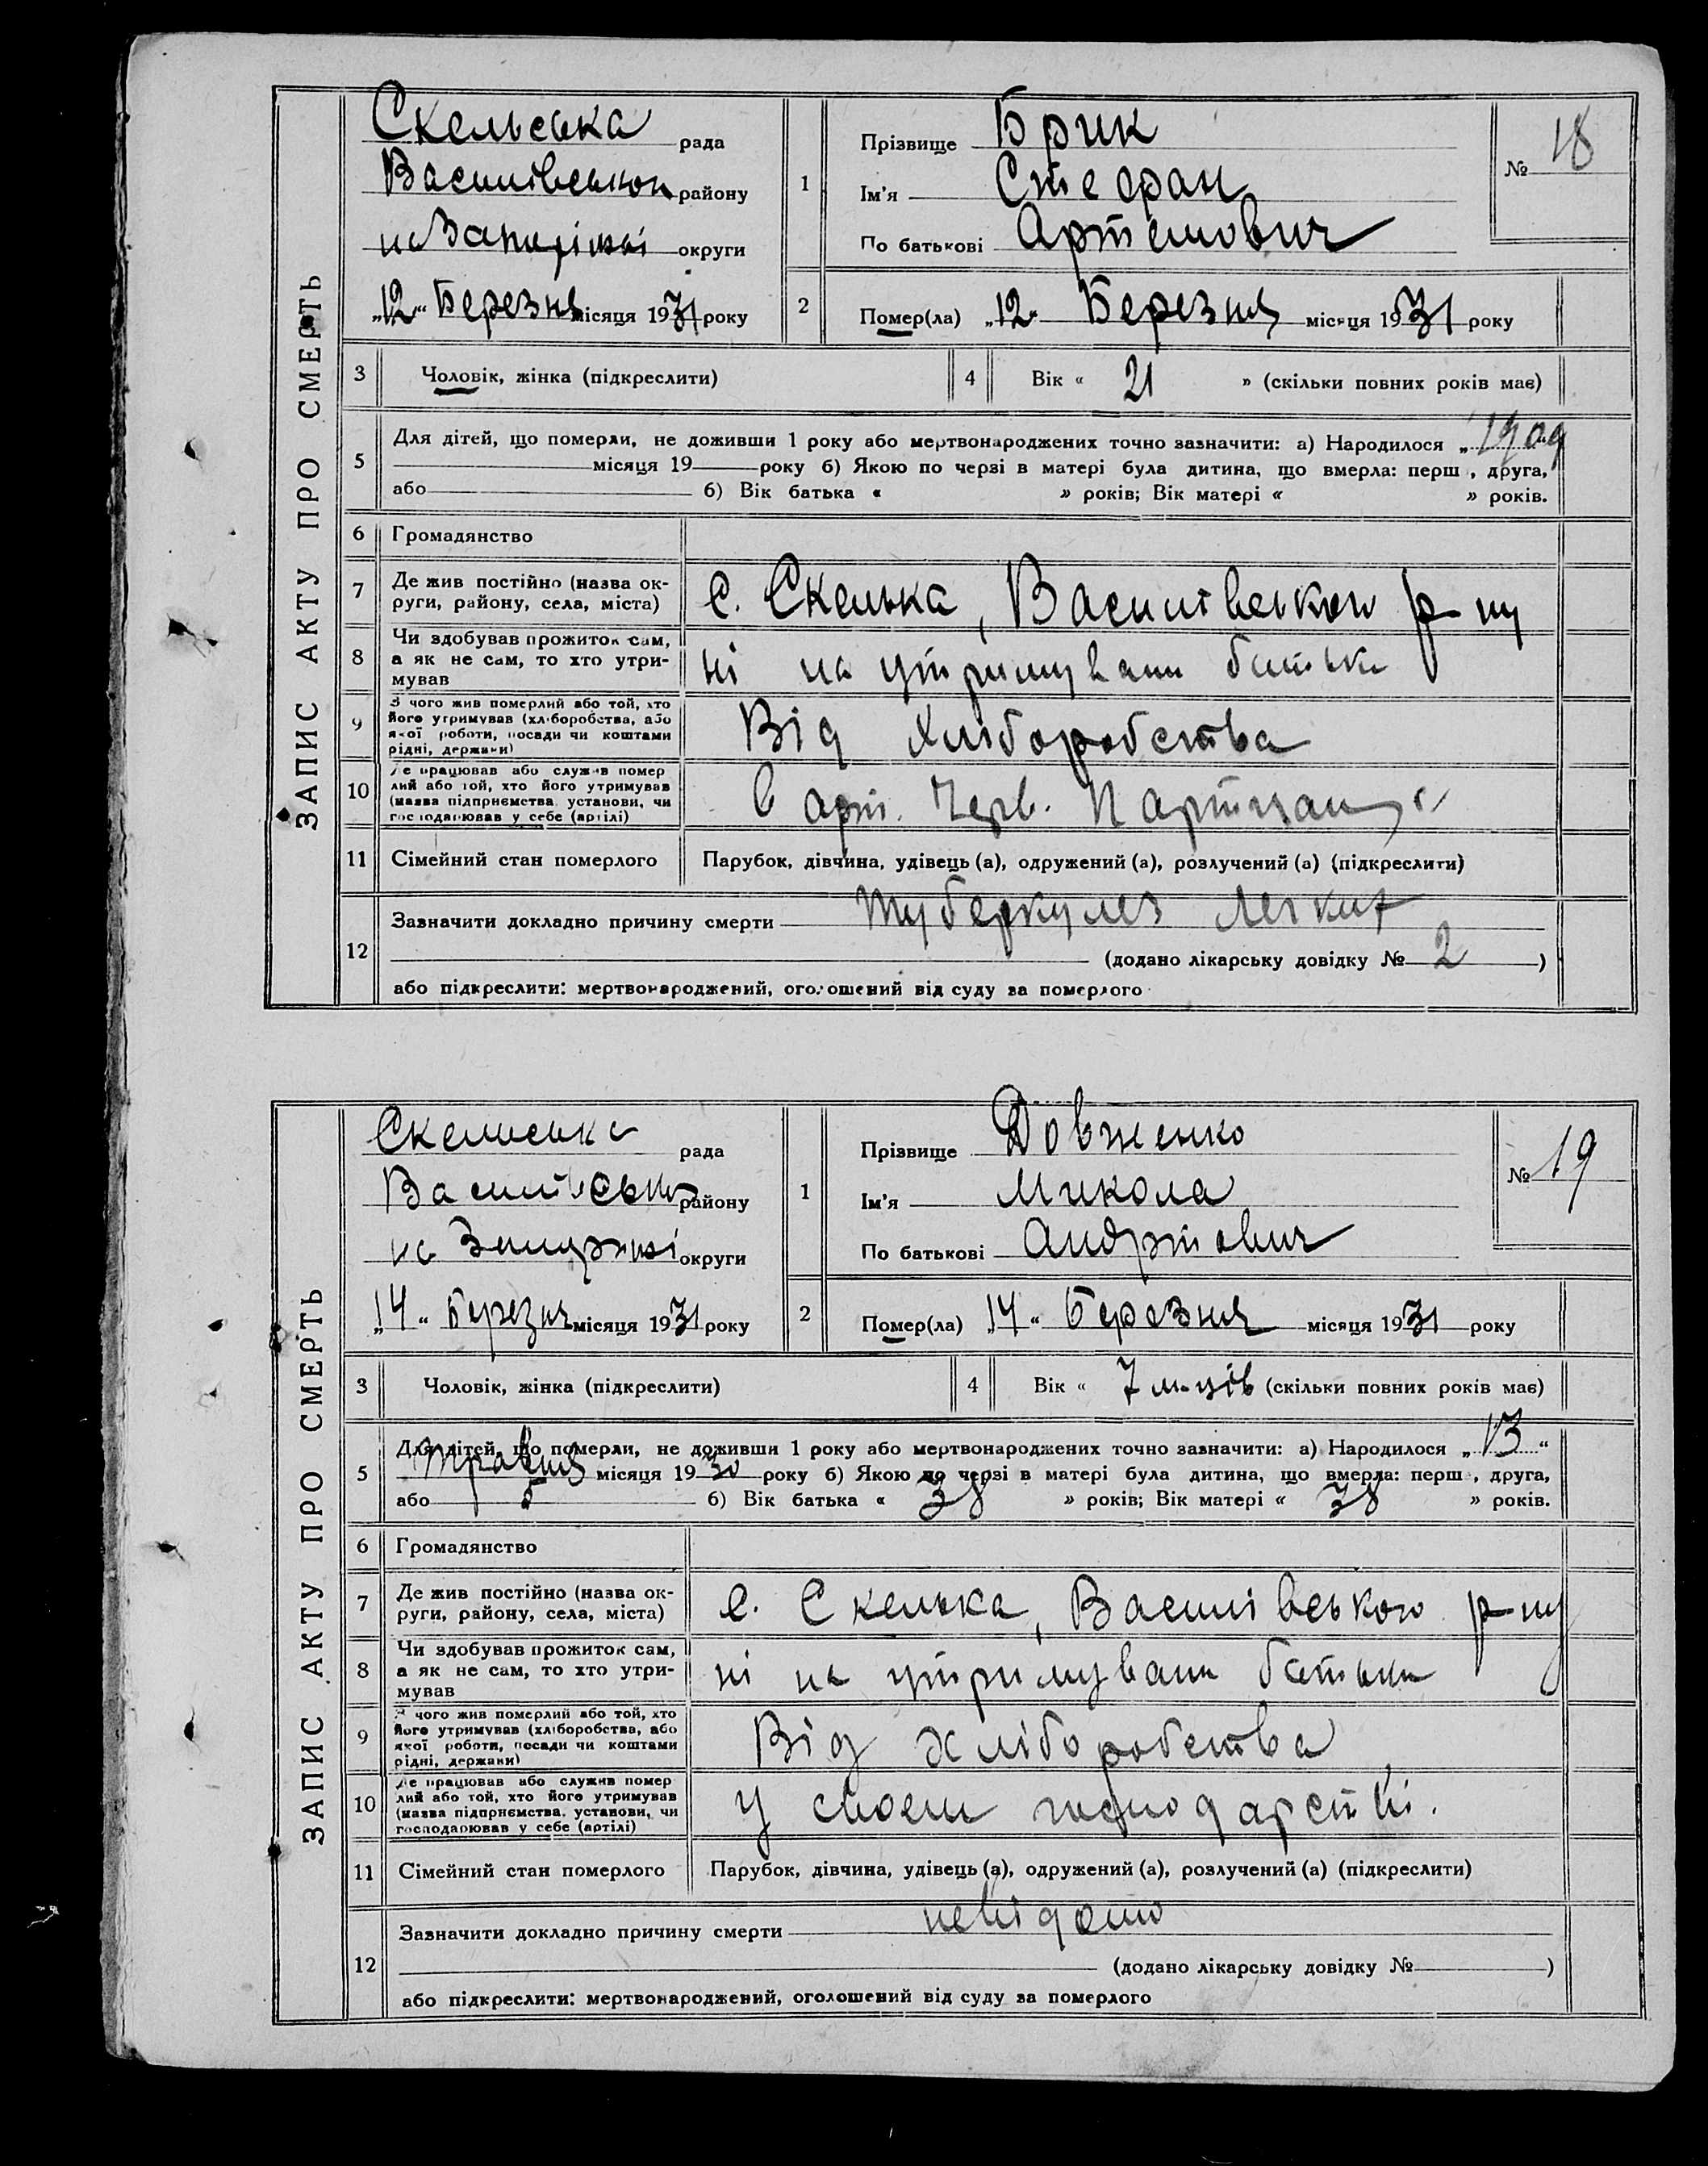 ЗАПИС АКТУ ПРО СМЕРТЬ
Скельська рада
Василівського району
на Запоріжжі округи
„12“ Березня місяця 1931 року
1
Прізвище Брик
Ім'я Стефан
По батькові Артемович
№ 18
2
Помер(ла) „12“ Березня місяця 1931 року
3 Чоловік, жінка (підкреслити)
4 Вік « 21 » (скільки повних років має)
5
Для дітей, що померли, не доживши 1 року або мертвонароджених точно зазначити: а) Народилося „ 1909
місяця 19 року б) Якою по черзі в матері була дитина, що вмерла: перш , друга,
або б) Вік батька « » років; Вік матері « » років.
6 Громадянство
7
Де жив постійно (назва ок-
руги, району, села, міста)
с. Скелька, Василівського р-ну
8
Чи здобував прожиток сам,
а як не сам, то хто утри-
мував
ні на утримувани батька
9
З чого жив померлий або той, хто
його утримував (хліборобства, або
якої роботи, посади чи коштами
рідні, держави)
Від хліборобства
10
Де працював або служив помер
лий або той, хто його утримував
(назва підприємства, установи, чи
господарював у себе (артілі)
в арт. Черв. Партизан
11 Сімейний стан померлого
Парубок, дівчина, удівець (а), одружений (а), розлучений (а) (підкреслити)
12
Зазначити докладно причину смерти туберкулез легких
(додано лікарську довідку № 2 )
або підкреслити: мертвонароджений, оголошений від суду за померлого
ЗАПИС АКТУ ПРО СМЕРТЬ
Скельська рада
Василівсько району
на Запоріжжі округи
„14“ Березня місяця 1931 року
1
Прізвище Довженко
Ім'я Микола
По батькові Андрійович
№ 19
2
Помер(ла) „14“ Березня місяця 1931 року
3 Чоловік, жінка (підкреслити)
4 Вік « 7 м-ців (скільки повних років має)
5
Для дітей, що померли, не доживши 1 року або мертвонароджених точно зазначити: а) Народилося „ 13 “
Травня місяця 1930 року б) Якою по черзі в матері була дитина, що вмерла: перш , друга,
або 5 б) Вік батька « 38 » років; Вік матері « 38 » років.
6 Громадянство
7
Де жив постійно (назва ок-
руги, району, села, міста)
с. Скелька, Василівського р-ну
8
Чи здобував прожиток сам,
а як не сам, то хто утри-
мував
ні на утримувани батька
9
З чого жив померлий або той, хто
його утримував (хліборобства, або
якої роботи, посади чи коштами
рідні, держави)
Від хліборобства
10
Де працював або служив помер
лий або той, хто його утримував
(назва підприємства, установи, чи
господарював у себе (артілі)
у своем господарстві.
11 Сімейний стан померлого
Парубок, дівчина, удівець (а), одружений (а), розлучений (а) (підкреслити)
12
Зазначити докладно причину смерти невідомо
(додано лікарську довідку № )
або підкреслити: мертвонароджений, оголошений від суду за померлого